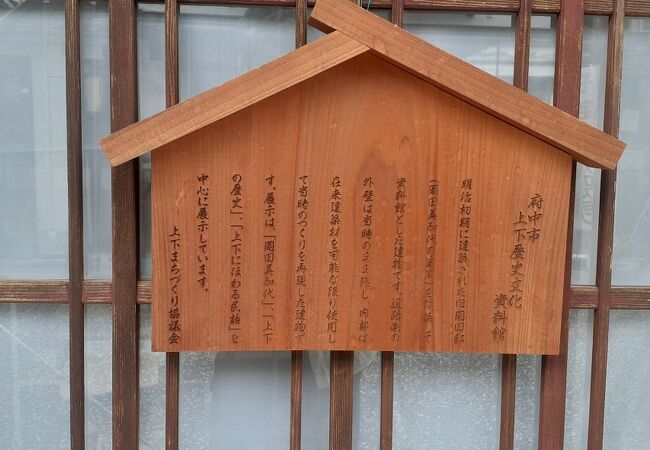 府中市
上下歴史文化
資料館
明治初期に建築された旧岡田邸
(岡田美知代の生家)を改築して
資料館とした建物です。道路側の
外壁は当時のまま残し、内部は
在来建築材を可能な限り使用し
て当時のつくりを再現した建物で
す。展示は、「岡田美知代」、「上下
の歴史」、「上下に伝わる民話」を
中心に展示しています。
上下まちづくり協議会